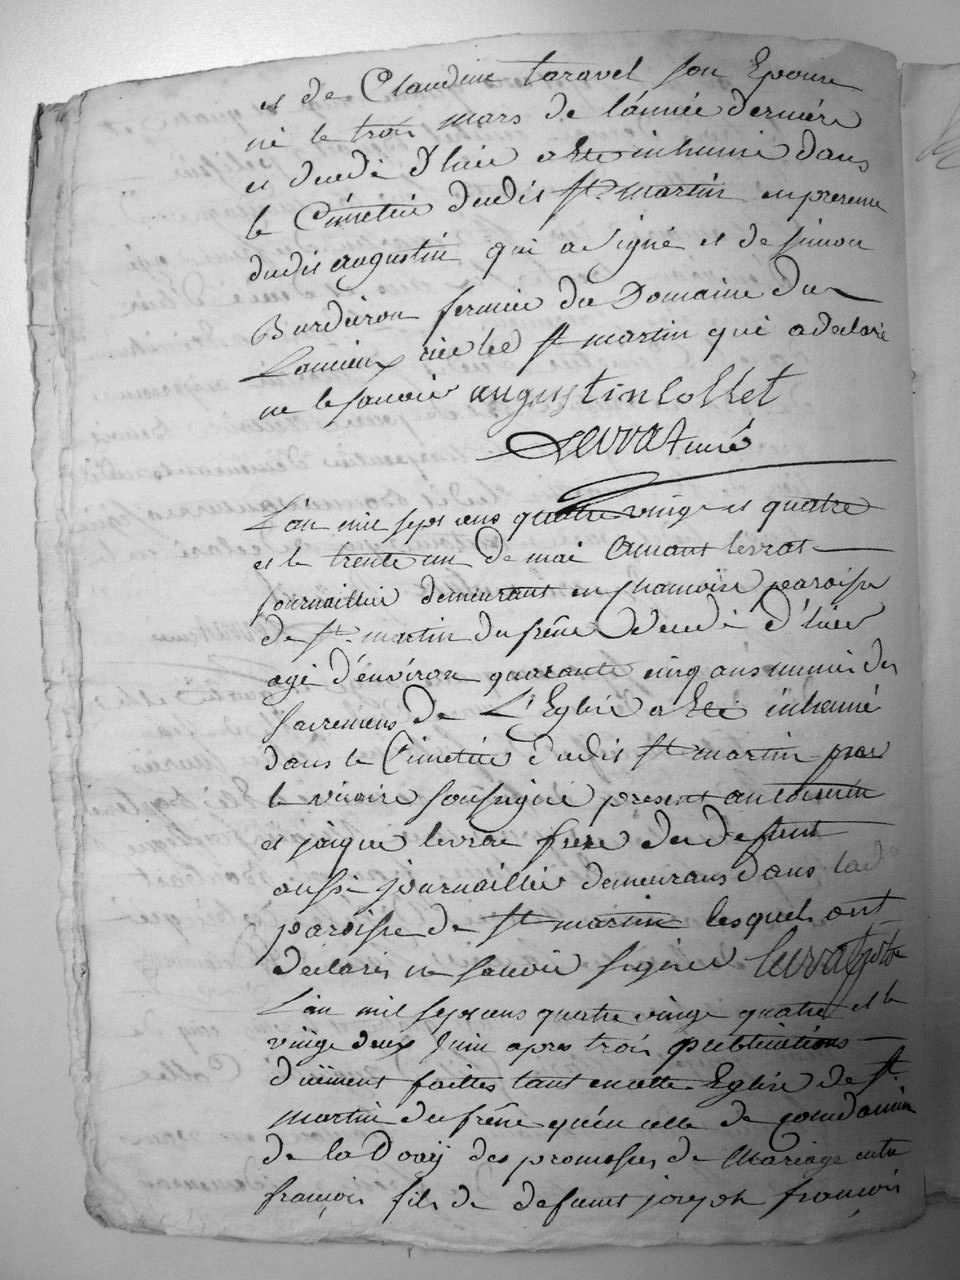 et de Claudine taravel son Epouse
né le trois mars de l'année derniére
et decedé d'hier a ete inhumé dans
le Cimetier dudit St martin en presence
dudit augustin qui a signé et de simon
fermier du Domaine du
rière led St martin qui a declaré
ne le savoir augustin collet
Levrat curé
L'an mil sept cens quatre vingt et quatre
et le trente un de mai levrat
journaillier demeurant en paroisse
de St martin du frêne decedé d'hier
agé d'environ quarante cinq ans munis des
sacremens de L'Eglise a Eté inhumé
dans le Cimetier dudit St martin par
le vicaire soussigné present anthelme
et jaique levrat frere du defunt
aussi journaillier demeurans dans lad
paroisse de St martin lesquels ont
declarés ne savoir signer
L'an mil sept cens quatre vingt quatre et le
vingt deux juin apres trois publications
duëment faittes tant en cette Eglise de St
martin du frêne qu'en celle de condamine
de la Doÿ des promesses de Mariage entre
françois fils de defunt joseph françois